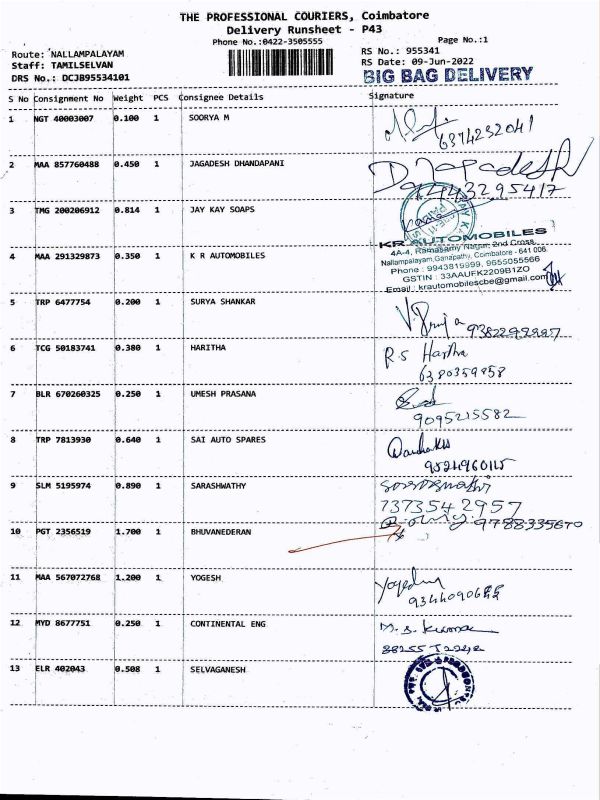 THE PROFESSIONAL COURIERS, Coimbatore
Delivery Runsheet - P43
Phone No.:0422-3505555
Page No.:1
Route: NALLAMPALAYAM
Staff: TAMILSELVAN
DRS No.: DCJB95534101
RS No.: 955341
RS Date: 09-Jun-2022
BIG BAG DELIVERY
S No Consignment No Weight PCS Consignee Details Signature
1 NGT 40003007 0.100 1 SOORYA M
6374232041
2 MAA 857760488 0.450 1 JAGADESH DHANDAPANI
94443295417
3 TMG 200206912 0.814 1 JAY KAY SOAPS
4 MAA 291329873 0.350 1 K R AUTOMOBILES
KR AUTOMOBILES
4A-4, Ramasamy Nagar, 2nd Cross,
Nallampalayam,Ganapathy, Coimbatore - 641 006.
Phone : 9943819999, 9655055566
GSTIN : 33AAUFK2209B1ZO
Email : krautomobilescbe@gmail.com
5 TRP 6477754 0.200 1 SURYA SHANKAR
6 TCG 50183741 0.380 1 HARITHA
R.S Haritha
7 BLR 670260325 0.250 1 UMESH PRASANA
9095215582
8 TRP 7813930 0.640 1 SAI AUTO SPARES
9 SLM 5195974 0.890 1 SARASHWATHY
7373542957
10 PGT 2356519 1.700 1 BHUVANEDERAN
9788335670
11 MAA 567072768 1.200 1 YOGESH
12 MYD 8677751 0.250 1 CONTINENTAL ENG
M.S. Kumar
13 ELR 402043 0.508 1 SELVAGANESH